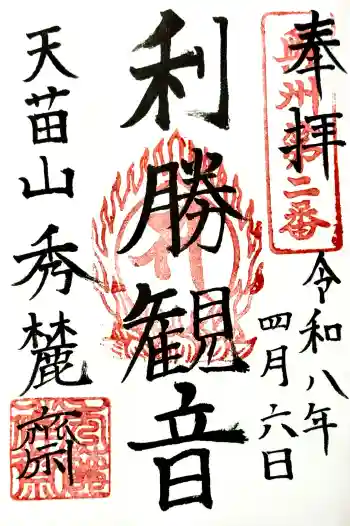 奉拝
奥州第二番
令和八年
四月六日
利勝観音
天苗山秀麓齋